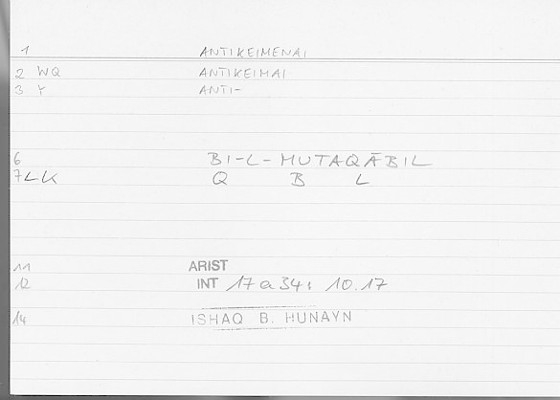 1 ANTIKEIMENAI
2 WQ ANTIKEIMAI
3 Y ANTI-
6 BI-L-MUTAQĀBIL
7 LK Q B L
11 ARIST
12 INT 17a34; 10.17
14 ISHAQ B. HUNAYN